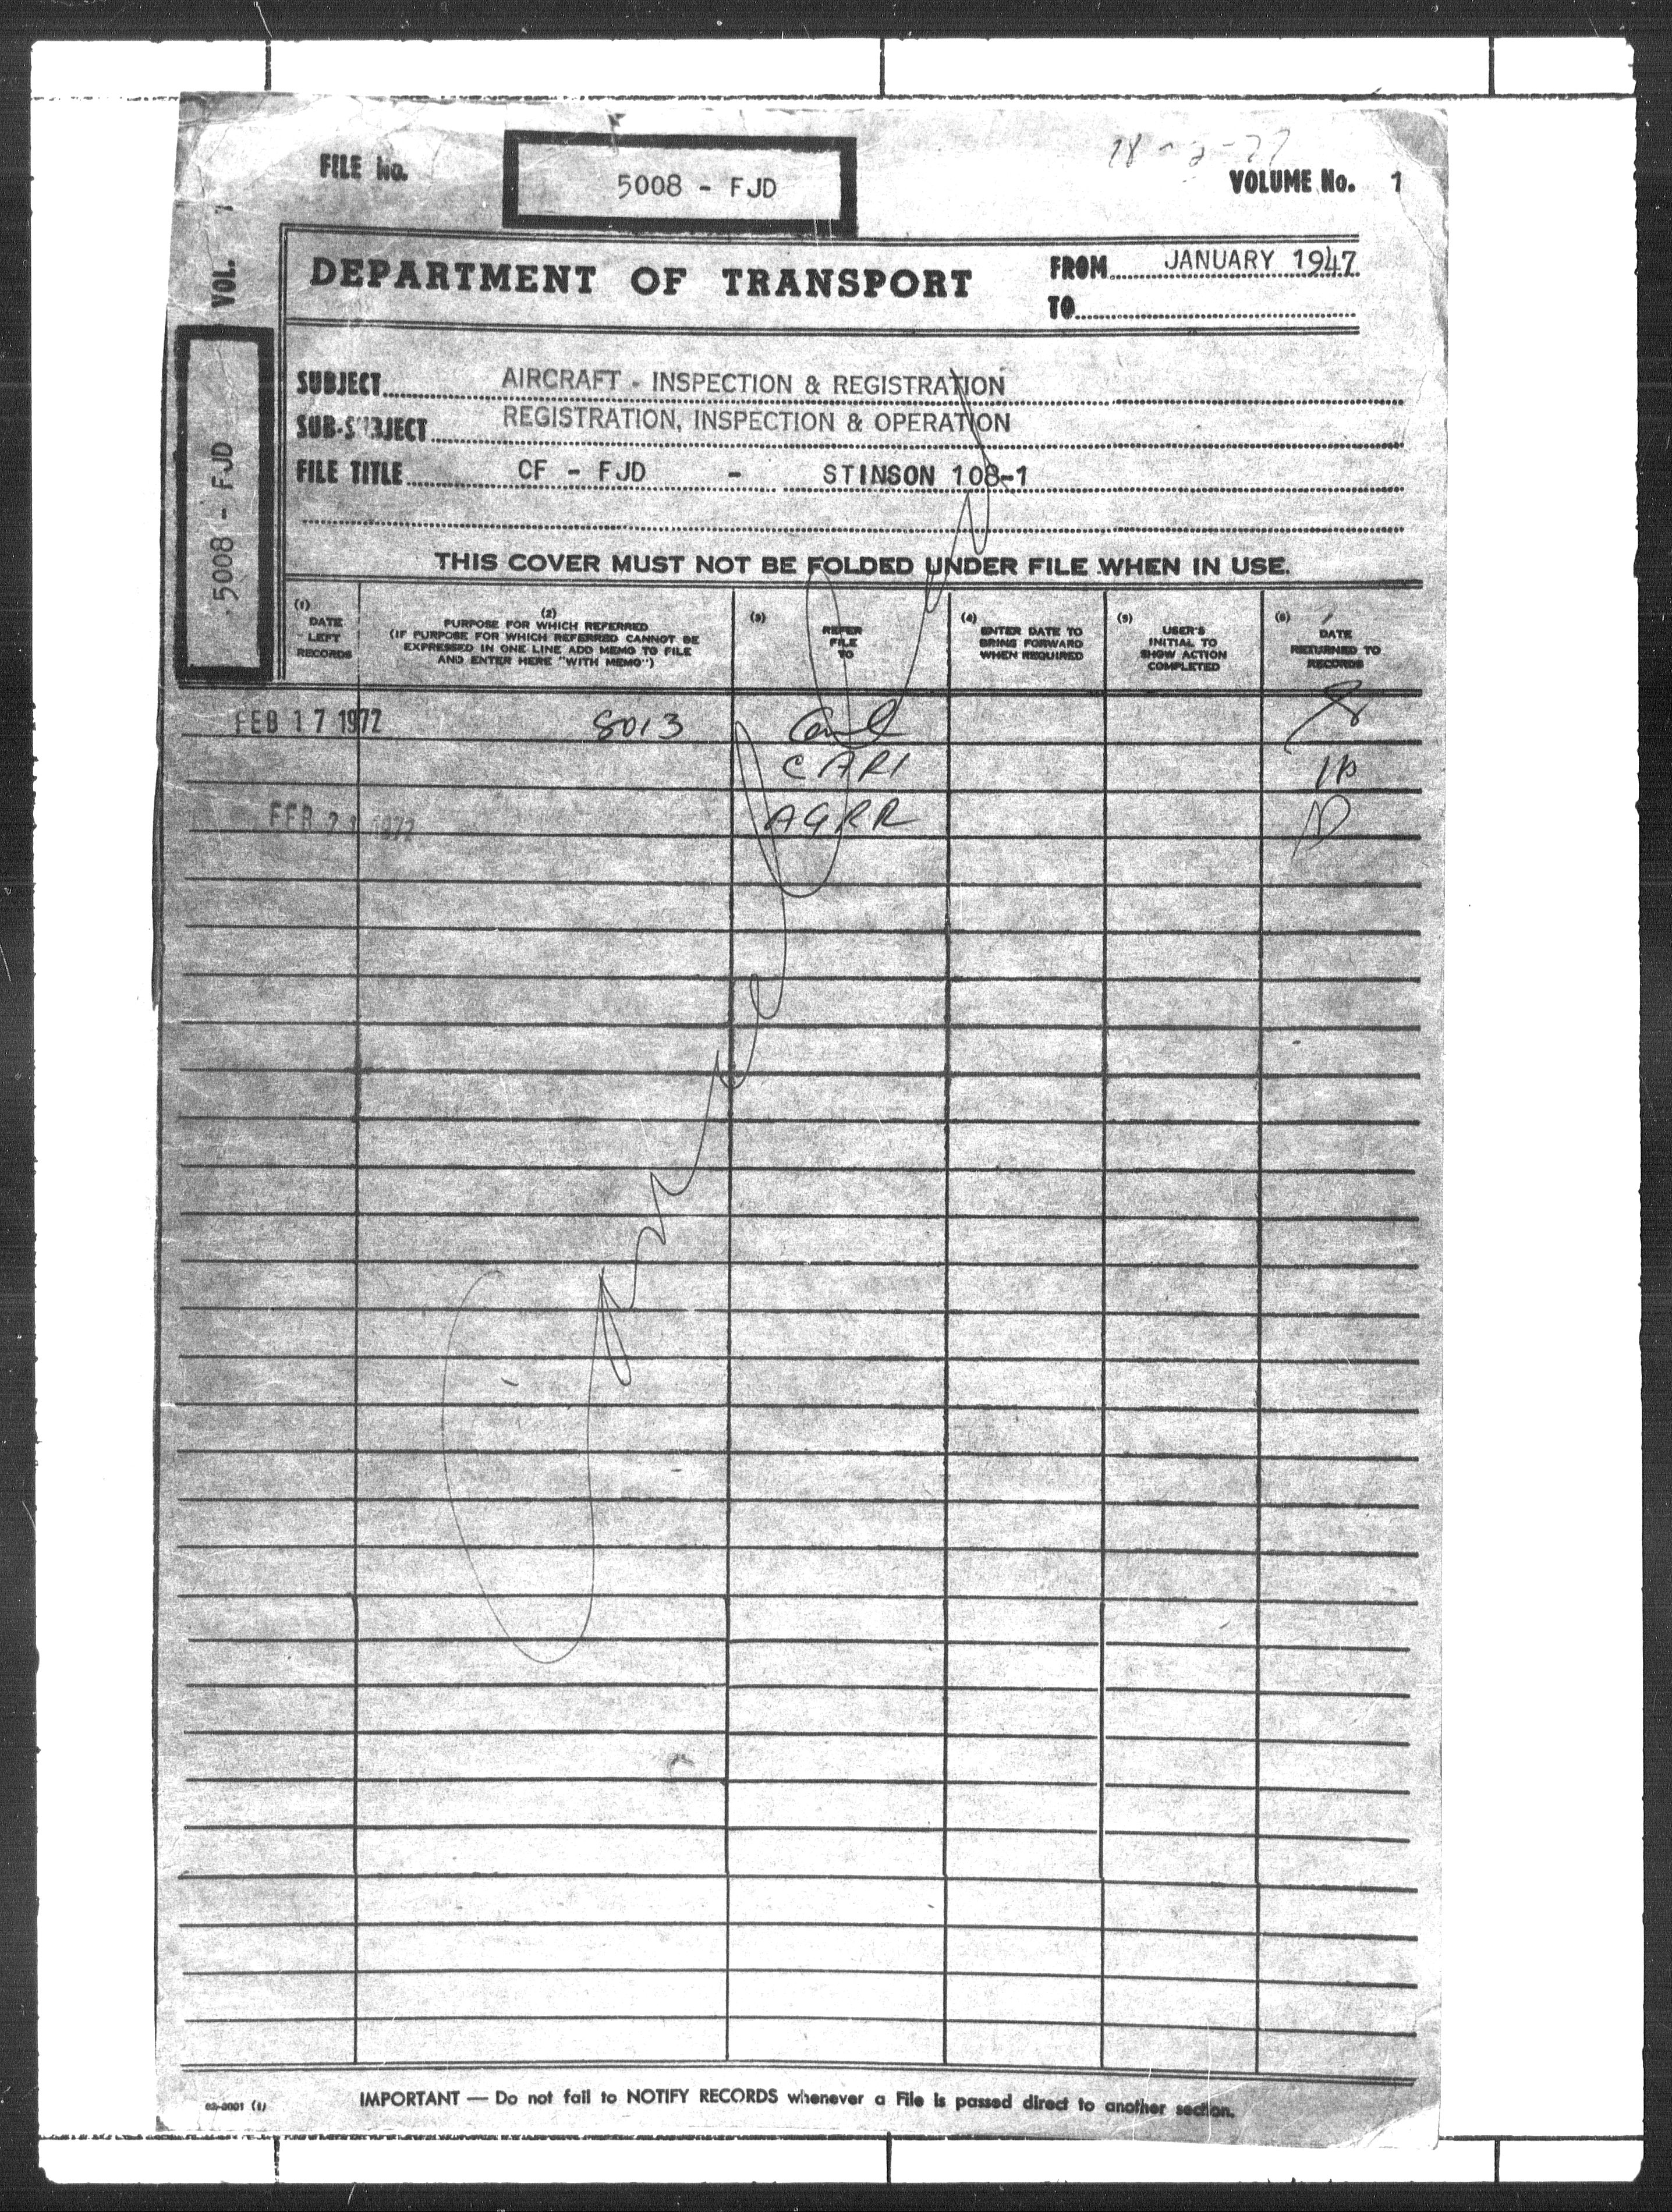 FILE No.
5008 - FJD
VOLUME No. 1
VOL. 1
5008 - FJD
DEPARTMENT OF TRANSPORT
FROM JANUARY 1947
TO
SUBJECT AIRCRAFT - INSPECTION & REGISTRATION
SUB-SUBJECT REGISTRATION, INSPECTION & OPERATION
FILE TITLE CF - FJD - STINSON 108-1
THIS COVER MUST NOT BE FOLDED UNDER FILE WHEN IN USE.
(1)
DATE
LEFT
RECORDS
(2)
PURPOSE FOR WHICH REFERRED
(IF PURPOSE FOR WHICH REFERRED CANNOT BE
EXPRESSED IN ONE LINE ADD MEMO TO FILE
AND ENTER HERE "WITH MEMO")
(3)
REFER
FILE
TO
(4)
ENTER DATE TO
BRING FORWARD
WHEN REQUIRED
(5)
USER'S
INITIAL TO
SHOW ACTION
COMPLETED
(6)
DATE
RETURNED TO
RECORDS
FEB 17 1972 8013
FEB 1972 AGRR
IMPORTANT — Do not fail to NOTIFY RECORDS whenever a File is passed direct to another section.